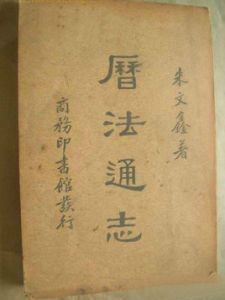 朱文鑫著
曆法通志
商務印書館發行